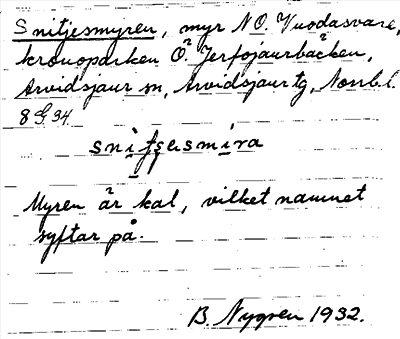 Snitjesmyren, myr NO. Vuodasvare,
kronoparken Ö. Jerfojaurbäcken,
Arvidsjaur sn, Arvidsjaur tg, Norrb. l.
8 G, 34.
snitʃesmira
Myren är kal, vilket namnet
syftar på.
B. Nygren 1932.